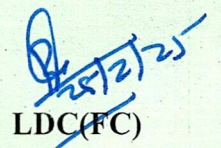 25/2/25
LDC(FC)